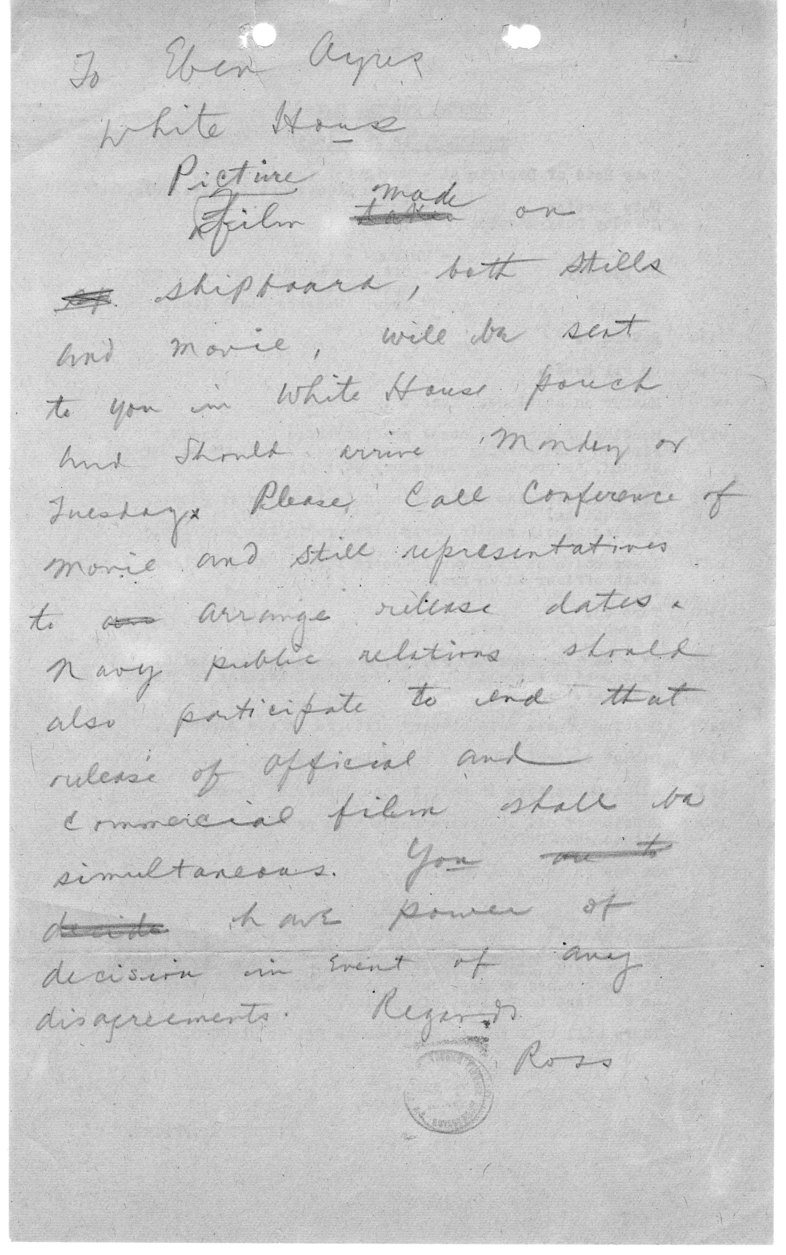 To Eben Ayres
White House
Picture
film taken made on
shipboard, both stills
and movie, will be sent
to you in White House pouch
and should arrive Monday or
Tuesday. Please call conference of
movie and still representatives
to arrange release dates.
Navy public relations should
also participate to end that
release of official and
commercial film shall be
simultaneous. You are to
decide have power of
decision in event of any
disagreements. Regards
Ross